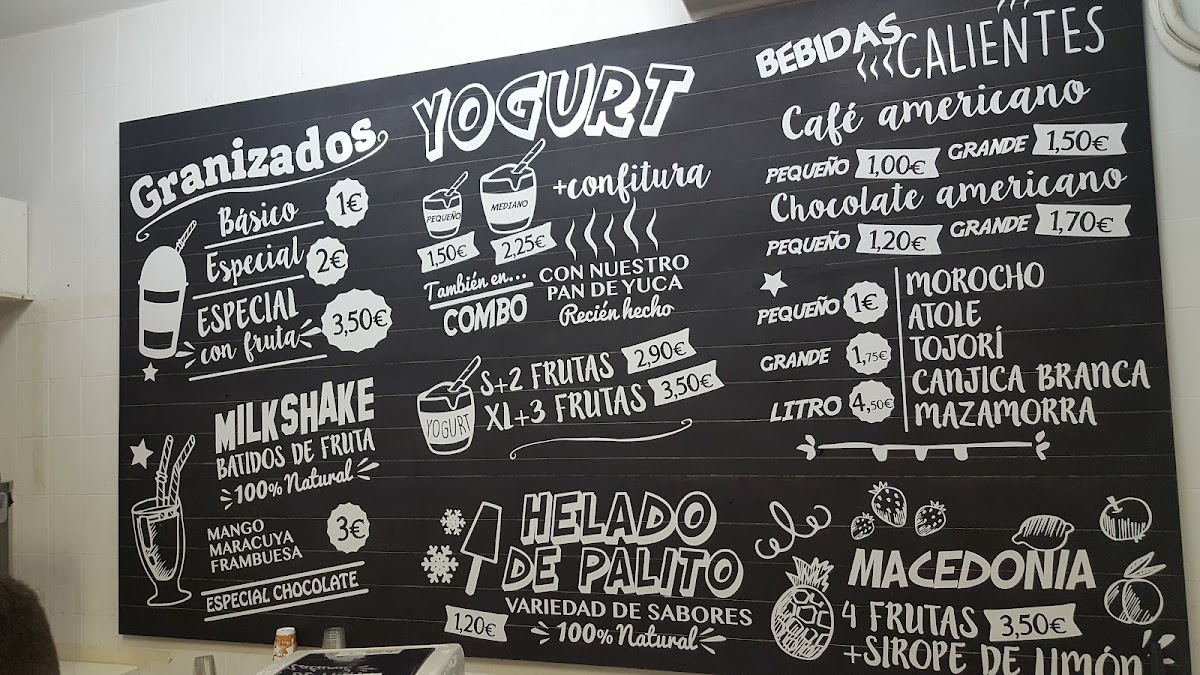 Granizados
Básico 1€
Especial 2€
ESPECIAL
con fruta 3,50€
MILKSHAKE
BATIDOS DE FRUTA
100% Natural
MANGO
MARACUYA
FRAMBUESA
3€
ESPECIAL CHOCOLATE
YOGURT
PEQUEÑO
1,50€
MEDIANO
2,25€
+confitura
También en...
COMBO
CON NUESTRO
PAN DE YUCA
Recién hecho
YOGURT
S+2 FRUTAS 2,90€
XL+3 FRUTAS 3,50€
HELADO
DE PALITO
VARIEDAD DE SABORES
1,20€
100% Natural
BEBIDAS
CALIENTES
Café americano
PEQUEÑO 1,00€ GRANDE 1,50€
Chocolate americano
PEQUEÑO 1,20€ GRANDE 1,70€
PEQUEÑO 1€
GRANDE 1,75€
LITRO 4,50€
MOROCHO
ATOLE
TOJORÍ
CANJICA BRANCA
MAZAMORRA
MACEDONIA
4 FRUTAS 3,50€
+SIROPE DE LIMÓN